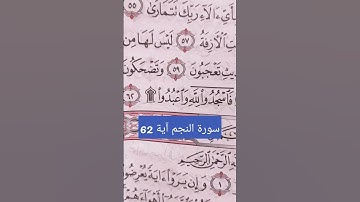 ءَالَآءِ رَبِّكَ تَتَمَارَىٰ ٥٥
ٱلْأَزِفَةُ ٥٧ لَيْسَ لَهَا مِن
تَعْجَبُونَ ٥٩ وَتَضْحَكُونَ
فَٱسْجُدُوا۟ لِلَّهِ وَٱعْبُدُوا۟ ۩ ٦٢
سورة النجم آية 62
ٱلرَّحِيمِ
١ وَإِن يَرَوْا۟ ءَايَةً يُعْرِضُوا۟